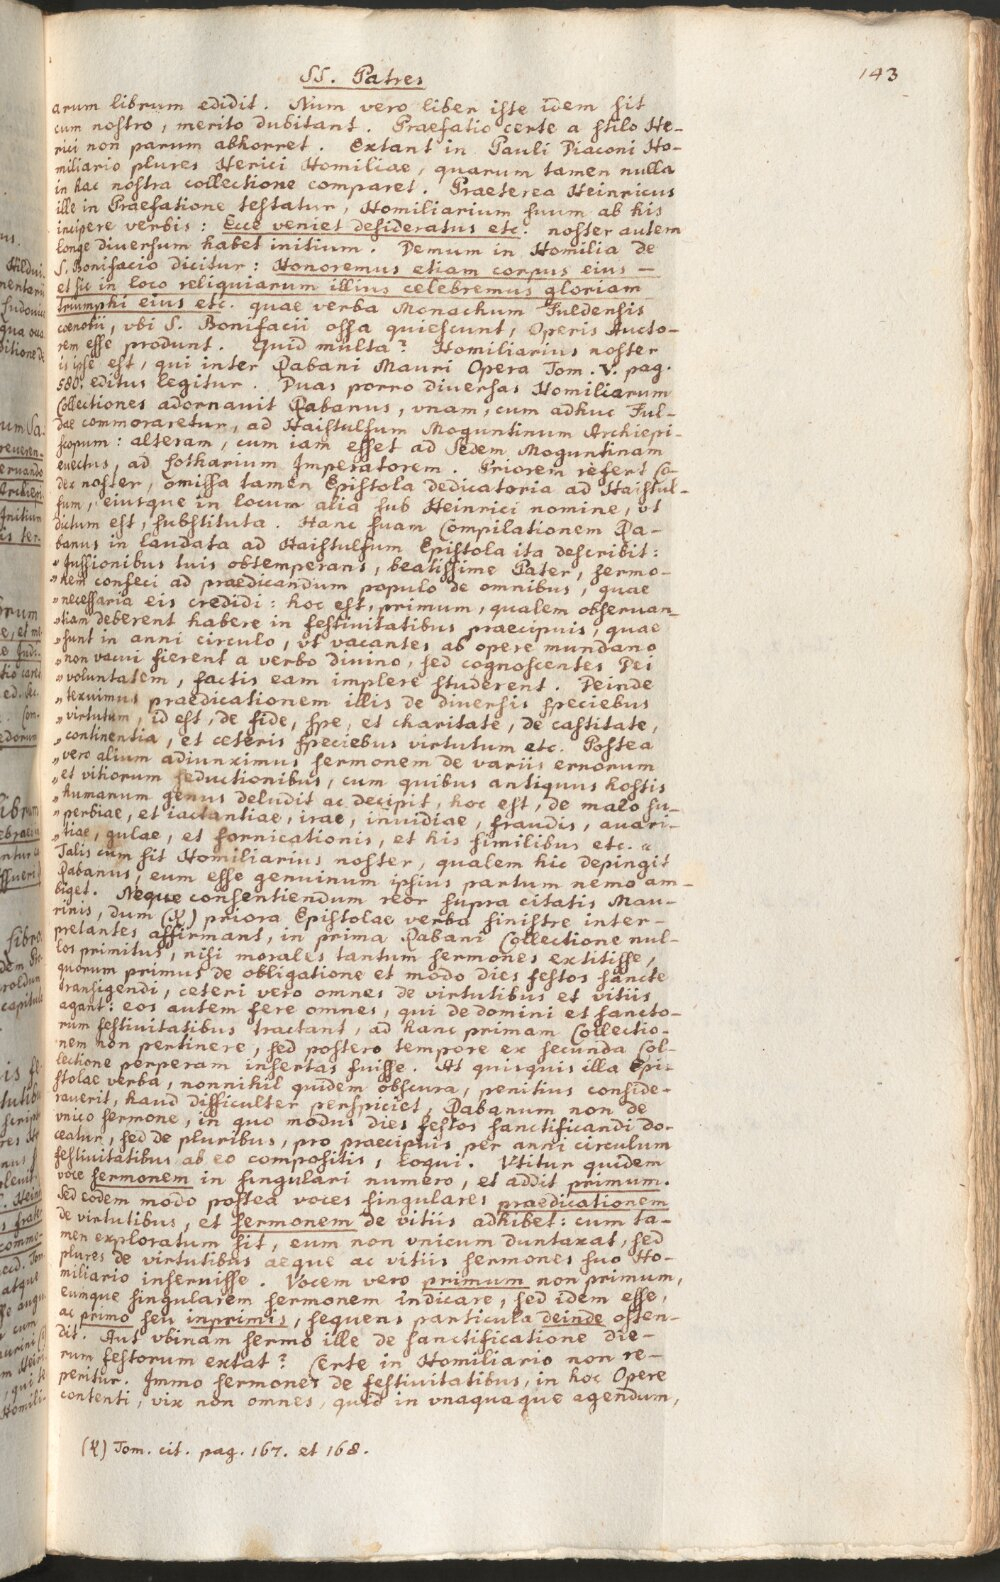 SS. Patres
143
arum librum edidit. Num vero liber iste idem sit
cum nostro, merito dubitant. Praefatio certe a stilo He-
rici non parum abhorret. Extant in Pauli Diaconi Ho-
miliario plures Herici Homiliae, quarum tamen nulla
in hac nostra collectione comparet. Praeterea Heinricus
ille in Praefatione testatur, Homiliarium suum ab his
incipere verbis: Ecce veniet desideratus etc. noster autem
longe diversum habet initium. Demum in Homilia de
S. Bonifacio dicitur: Honoremus etiam corpus eius —
et sic in loco reliquiarum illius celebremus gloriam
triumphi eius etc. quae verba Monachum Fuldensis
coenobii, vbi S. Bonifacii ossa quiescunt, Operis Aucto-
rem esse produnt. Quid multa? Homiliarius noster
is ipse est, qui inter Rabani Mauri Opera Tom. V. pag.
580. editus legitur. Duas porro diversas Homiliarum
Collectiones adornauit Rabanus, vnam, cum adhuc Ful-
dae commoraretur, ad Haistulfum Moguntinum Archiepi-
scopum: alteram, cum iam esset ad Sedem Moguntinam
euectus, ad Lotharium Imperatorem. Priorem refert Co-
dex noster, omissa tamen Epistola dedicatoria ad Haistul-
fum, eiusque in locum alia sub Heinrici nomine, vt
dictum est, substituta. Hanc suam Compilationem Ra-
banus in laudata ad Haistulfum Epistola ita describit:
„Jussionibus tuis obtemperans, beatissime Pater, sermo-
„nem confeci ad praedicandum populo de omnibus, quae
„necessaria eis credidi: hoc est, primum, qualem obseruan-
„tiam deberent habere in festiuitatibus praecipuis, quae
„sunt in anni circulo, vt vacantes ab opere mundano
„non vacui fierent a verbo diuino, sed cognoscentes Dei
„voluntatem, factis eam implere studerent. Deinde
„texuimus praedicationem illis de diuersis speciebus
„virtutum, id est, de fide, spe, et charitate, de castitate,
„continentia, et ceteris speciebus virtutum etc. Postea
„vero alium adiunximus sermonem de variis errorum
„et vitiorum seductionibus, cum quibus antiquus hostis
„humanum genus deludit ac decipit, hoc est, de malo su-
„perbiae, et iactantiae, irae, inuidiae, fraudis, auari-
„tiae, gulae, et fornicationis, et his similibus etc.“
Talis cum sit Homiliarius noster, qualem hic depingit
Rabanus, eum esse genuinum ipsius partum nemo am-
biget. Neque consentiendum reor supra citatis Mau-
rinis, dum (X) priora Epistolae verba sinistre inter-
pretantes affirmant, in prima Rabani Collectione nul-
los primitus, nisi morales tantum sermones extitisse,
quorum primus de obligatione et modo dies festos sancte
transigendi, ceteri vero omnes de virtutibus et vitiis
agant: eos autem fere omnes, qui de domini et sancto-
rum festiuitatibus tractant, ad hanc primam Collectio-
nem non pertinere, sed postero tempore ex secunda Col-
lectione perperam insertas fuisse. At quisquis illa Epi-
stolae verba, nonnihil quidem obscura, penitius conside-
rauerit, haud difficulter perspiciet, Rabanum non de
vnico sermone, in quo modus dies festos sanctificandi do-
ceatur, sed de pluribus, pro praecipuis per anni circulum
festiuitatibus ab eo compositis, loqui. Vtitur quidem
voce sermonem in singulari numero, et addit primum.
Sed eodem modo postea voces singulares praedicationem
de virtutibus, et sermonem de vitiis adhibet: cum ta-
men exploratum sit, eum non vnicum duntaxat, sed
plures de virtutibus aeque ac vitiis sermones suo Ho-
miliario inseruisse. Vocem vero primum non primum,
eumque singularem sermonem indicare, sed idem esse,
ac primo seu inprimis, sequens particula deinde osten-
dit. Aut vbinam sermo ille de sanctificatione die-
rum festorum extat? Certe in Homiliario non re-
peritur. Immo sermones de festiuitatibus, in hoc Opere
contenti, vix non omnes, quid in vnaquaque agendum,
(X) Tom. cit. pag. 167. et 168.